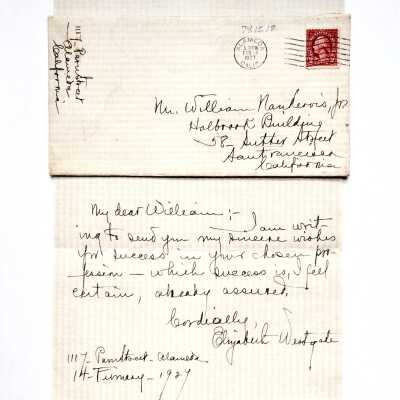 1117- Paru Street
Alameda
California
ALAMEDA
CALIF.
1927
Mr. William Nankervis, Jr.
Holbrook Building
58- Sutter Street
San Francisco
California
My dear William:-
I am writ-
ing to send you my sincere wishes
for success in your chosen pro-
fession - which success is, I feel
certain, already assured.
Cordially,
Elizabeth Westgate
1117- Paru Street - Alameda
14- - 1927